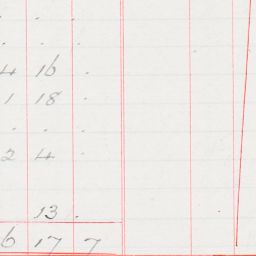 . . .
. . .
4 16 .
1 18 .
. . .
2 4 .
13 .
6 17 7